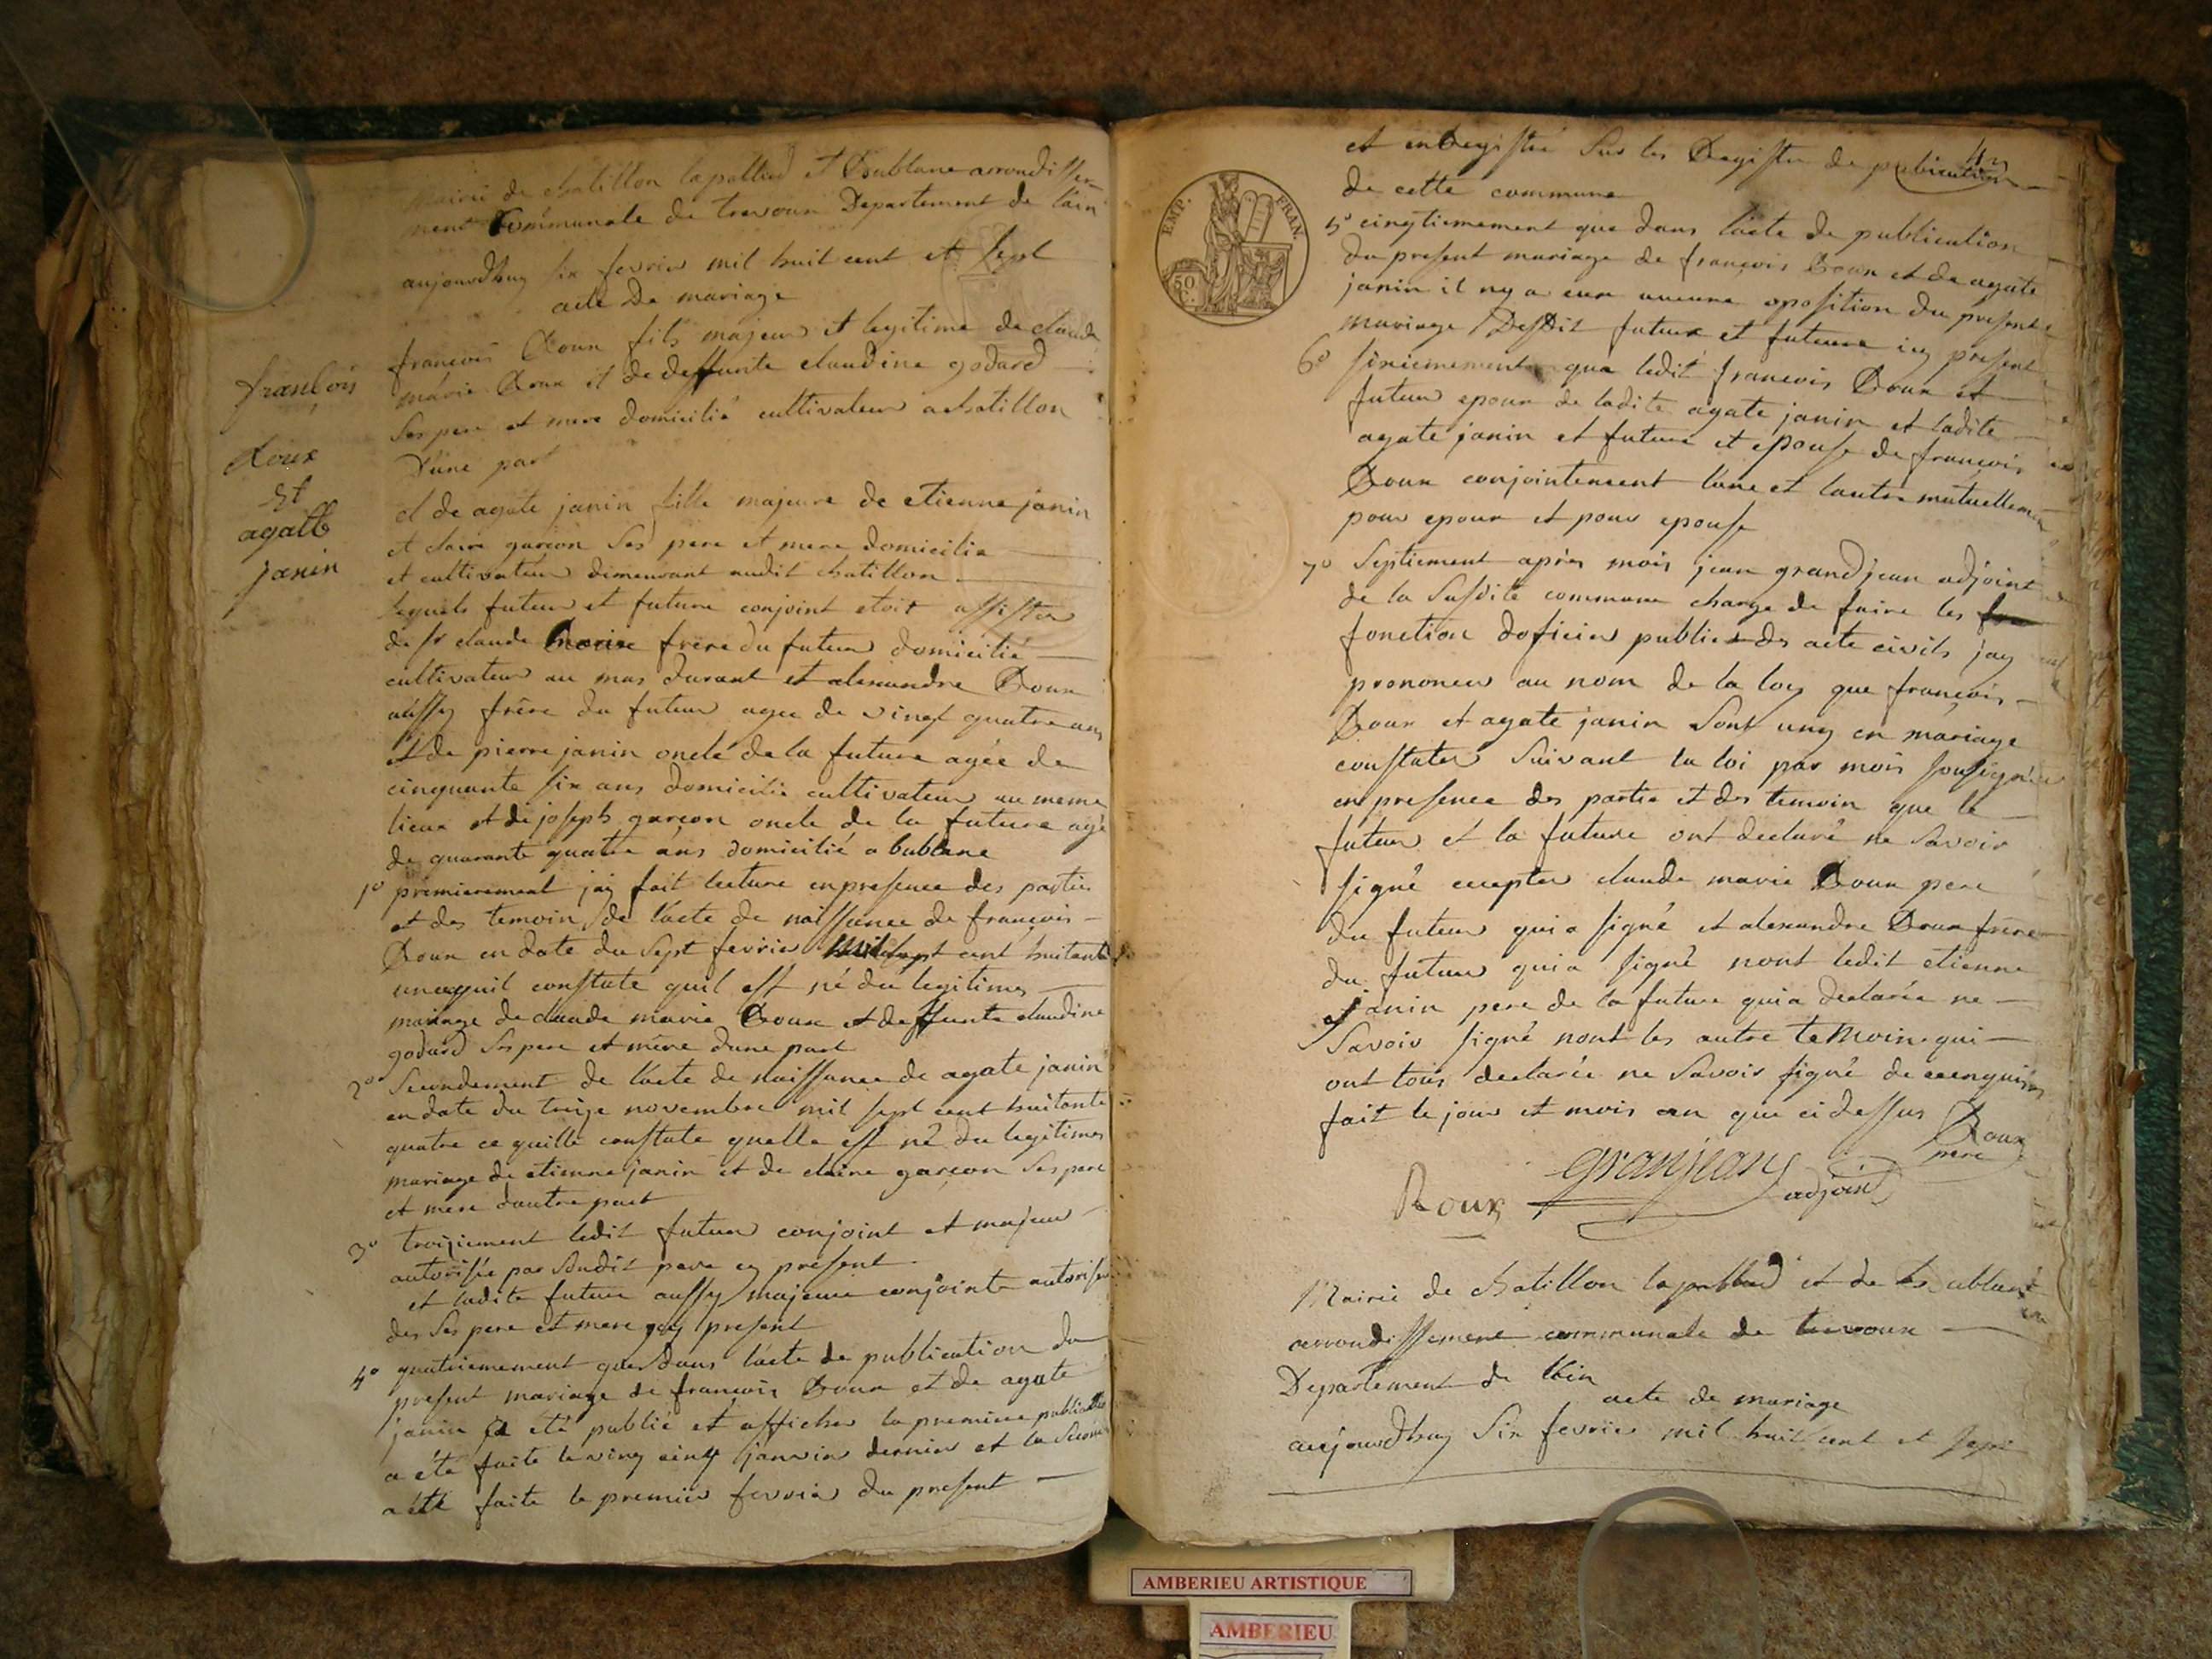 mairie de chatillon lapallud et Bublane arrondisse-
ment Communale de trevoux Departement de lain
aujourdhuy six fevrier mil huit cent et sept
acte de mariage
francois Roux fils majeur et legitime de claude
marie Roux et de deffunte claudine godard
ses pere et mere domicilié cultivateur a chatillon
Dune part
et de agate janin fille majeure de etienne janin
et claire garcon ses pere et mere domicilie
et cultivateur dimeurant audit chatillon
lequels futeur et future conjoint etoit assister
de sr claude marie frere du futeur domicilié
cultivateur au mas durant et alexandre Roux
aussy frère du futeur agee de vingt quatre ans
et de pierre janin oncle de la future agée de
cinquante six ans domicilie cultivateur au meme
lieux et de joseph garcon oncle de la future agé
de quarante quatre ans domicilié a bublane
1º premierement jaÿ fait lecture en presence des partie
et des temoin de lacte de naissance de françois
Roux en date du sept fevrier mil sept cent huitante
une quil constate quil est né du legitimes
mariage de claude marie Roux et deffunte claudine
godard ses pere et mère dune part
2º Secondement de lacte de naissance de agate janin
en date du treize novembre mil sept cent huitante
quatre ce quille constate quelle est né du legitimes
mariage de etienne janin et de claire garcon ses pere
et mere dautre part
3º troisiement ledit futeur conjoint et majeur
autorisée par sondit pere cy présent
et ladite future aussy majeure conjointe autoriser
des ses pere et mere present
4º quatriemement que dans lacte de publication du
present mariage de francois Roux et de agate
janin a eté publié et afficher la premiere publication
a été faite le ving cinq janvier dernier et la second
a été faite le premier fevrier du present
françois
Roux
et
agatte
janin
EMP. FRAN.
50
C.
et enregistré sur les Registre de publication
de cette commune
5º cinqtiemement que dans lacte de publication
du present mariage de françois Roux et de agate
janin il ny a eux aucune oposition du present
mariage Desdit futeur et future icy present
6º sixiemement que ledit francois Roux et
futeur epoux de ladite agate janin et ladite
agate janin et future et epouse de francois
Roux conjointement lune et lautre mutuellement
pour epoux et pour epouse
7º Septiement aprés mois jean grandjean adjoint
de la susdite commune charge de faire les
fonction doficier public des acte civils jay
prononcer au nom de la loy que françois
Roux et agate janin sont uny en mariage
constater suivant la loi par mois sousigner
en presence des partie et des temoin que le
futeur et la future ont declaré ne savoir
signé excepter claude marie Roux pere
du futeur qui a signé et alexandre Roux frere
du futeur qui a signé nont ledit etienne
janin pere de la future qui a declarée ne
savoir signé nont les autre temoin qui
ont tous declarée ne savoir signé de ce enquis
fait le jour et mois an que ci dessus
Roux
pere
Roux granjean adjoint
Mairie de chatillon lapallud et de Bublane
arrondissement communale de trevoux
Departement de lain
acte de mariage
aujourdhuy six fevrier mil huit cent et sept
AMBERIEU ARTISTIQUE
AMBERIEU